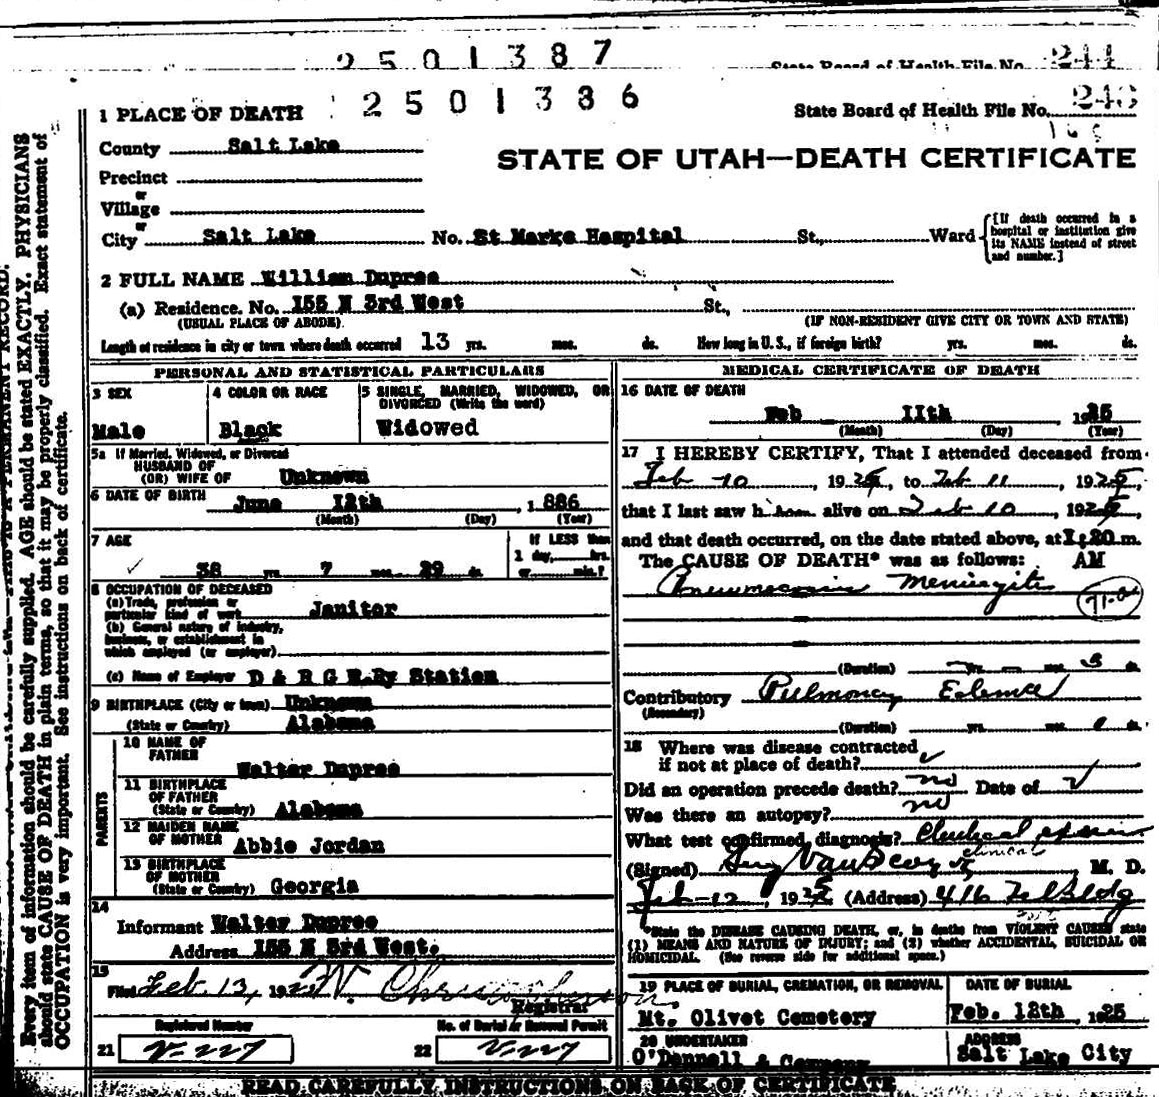 2501387
State Board of Health File No. 244
1 PLACE OF DEATH 2501386 State Board of Health File No.
County Salt Lake
STATE OF UTAH—DEATH CERTIFICATE
Precinct
or
Village
or
City Salt Lake No. St Marks Hospital St., Ward
[If death occurred in a hospital or institution give its NAME instead of street and number.]
2 FULL NAME William Dupree
(a) Residence. No. 155 N 3rd West St.,
(USUAL PLACE OF ABODE) (IF NON-RESIDENT GIVE CITY OR TOWN AND STATE)
Length of residence in city or town where death occurred 13 yrs. mos. ds. How long in U. S., if foreign birth? yrs. mos. ds.
PERSONAL AND STATISTICAL PARTICULARS
3 SEX
Male
4 COLOR OR RACE
Black
5 SINGLE, MARRIED, WIDOWED, OR
DIVORCED (Write the word)
Widowed
5a If Married, Widowed, or Divorced
HUSBAND OF
(OR) WIFE OF Unknown
6 DATE OF BIRTH June 12th, 1886
(Month) (Day) (Year)
7 AGE
38 yrs 7 mos. 29 ds.
If LESS than
1 day, hrs.
or min.?
8 OCCUPATION OF DECEASED
(a) Trade, profession or
particular kind of work Janitor
(b) General nature of industry,
business, or establishment in
which employed (or employer)
(c) Name of Employer D & R G R.Ry Station
9 BIRTHPLACE (City or town) Unknown
(State or Country) Alabama
PARENTS
10 NAME OF
FATHER Walter Dupree
11 BIRTHPLACE
OF FATHER
(State or Country) Alabama
12 MAIDEN NAME
OF MOTHER Abbie Jordan
13 BIRTHPLACE
OF MOTHER
(State or Country) Georgia
14
Informant Walter Dupree
Address 155 N 3rd West.
15
Filed Feb. 13, 192
Registrar
Registered Number No. of Burial or Removal Permit
21 V-227 22 V-227
MEDICAL CERTIFICATE OF DEATH
16 DATE OF DEATH
Feb 11th 1925
(Month) (Day) (Year)
17 I HEREBY CERTIFY, That I attended deceased from
Feb 10, 1925, to Feb 11, 1925,
that I last saw him alive on Feb 10, 1925,
and that death occurred, on the date stated above, at 1:20 m.
The CAUSE OF DEATH* was as follows: AM
Meningitis
(Duration) yrs. mos. 3 ds.
Contributory Pulmonary Edema
(Secondary)
(Duration) yrs. mos. ds.
18 Where was disease contracted
if not at place of death?
Did an operation precede death? no Date of
Was there an autopsy? no
What test confirmed diagnosis?
clinical
(Signed) M. D.
Feb-12, 1925 (Address) 416 Tel Bldg
*State the DISEASE CAUSING DEATH, or, in deaths from VIOLENT CAUSES state
(1) MEANS AND NATURE OF INJURY; and (2) whether ACCIDENTAL, SUICIDAL OR
HOMICIDAL. (See reverse side for additional space.)
19 PLACE OF BURIAL, CREMATION, OR REMOVAL
Mt. Olivet Cemetery
DATE OF BURIAL
Feb. 12th, 1925
20 UNDERTAKER
O'Donnell & Company
ADDRESS
Salt Lake City
READ CAREFULLY INSTRUCTIONS ON BACK OF CERTIFICATE
PERMANENT RECORD.
Every item of information should be carefully supplied. AGE should be stated EXACTLY. PHYSICIANS
should state CAUSE OF DEATH in plain terms, so that it may be properly classified. Exact statement of
OCCUPATION is very important. See instructions on back of certificate.